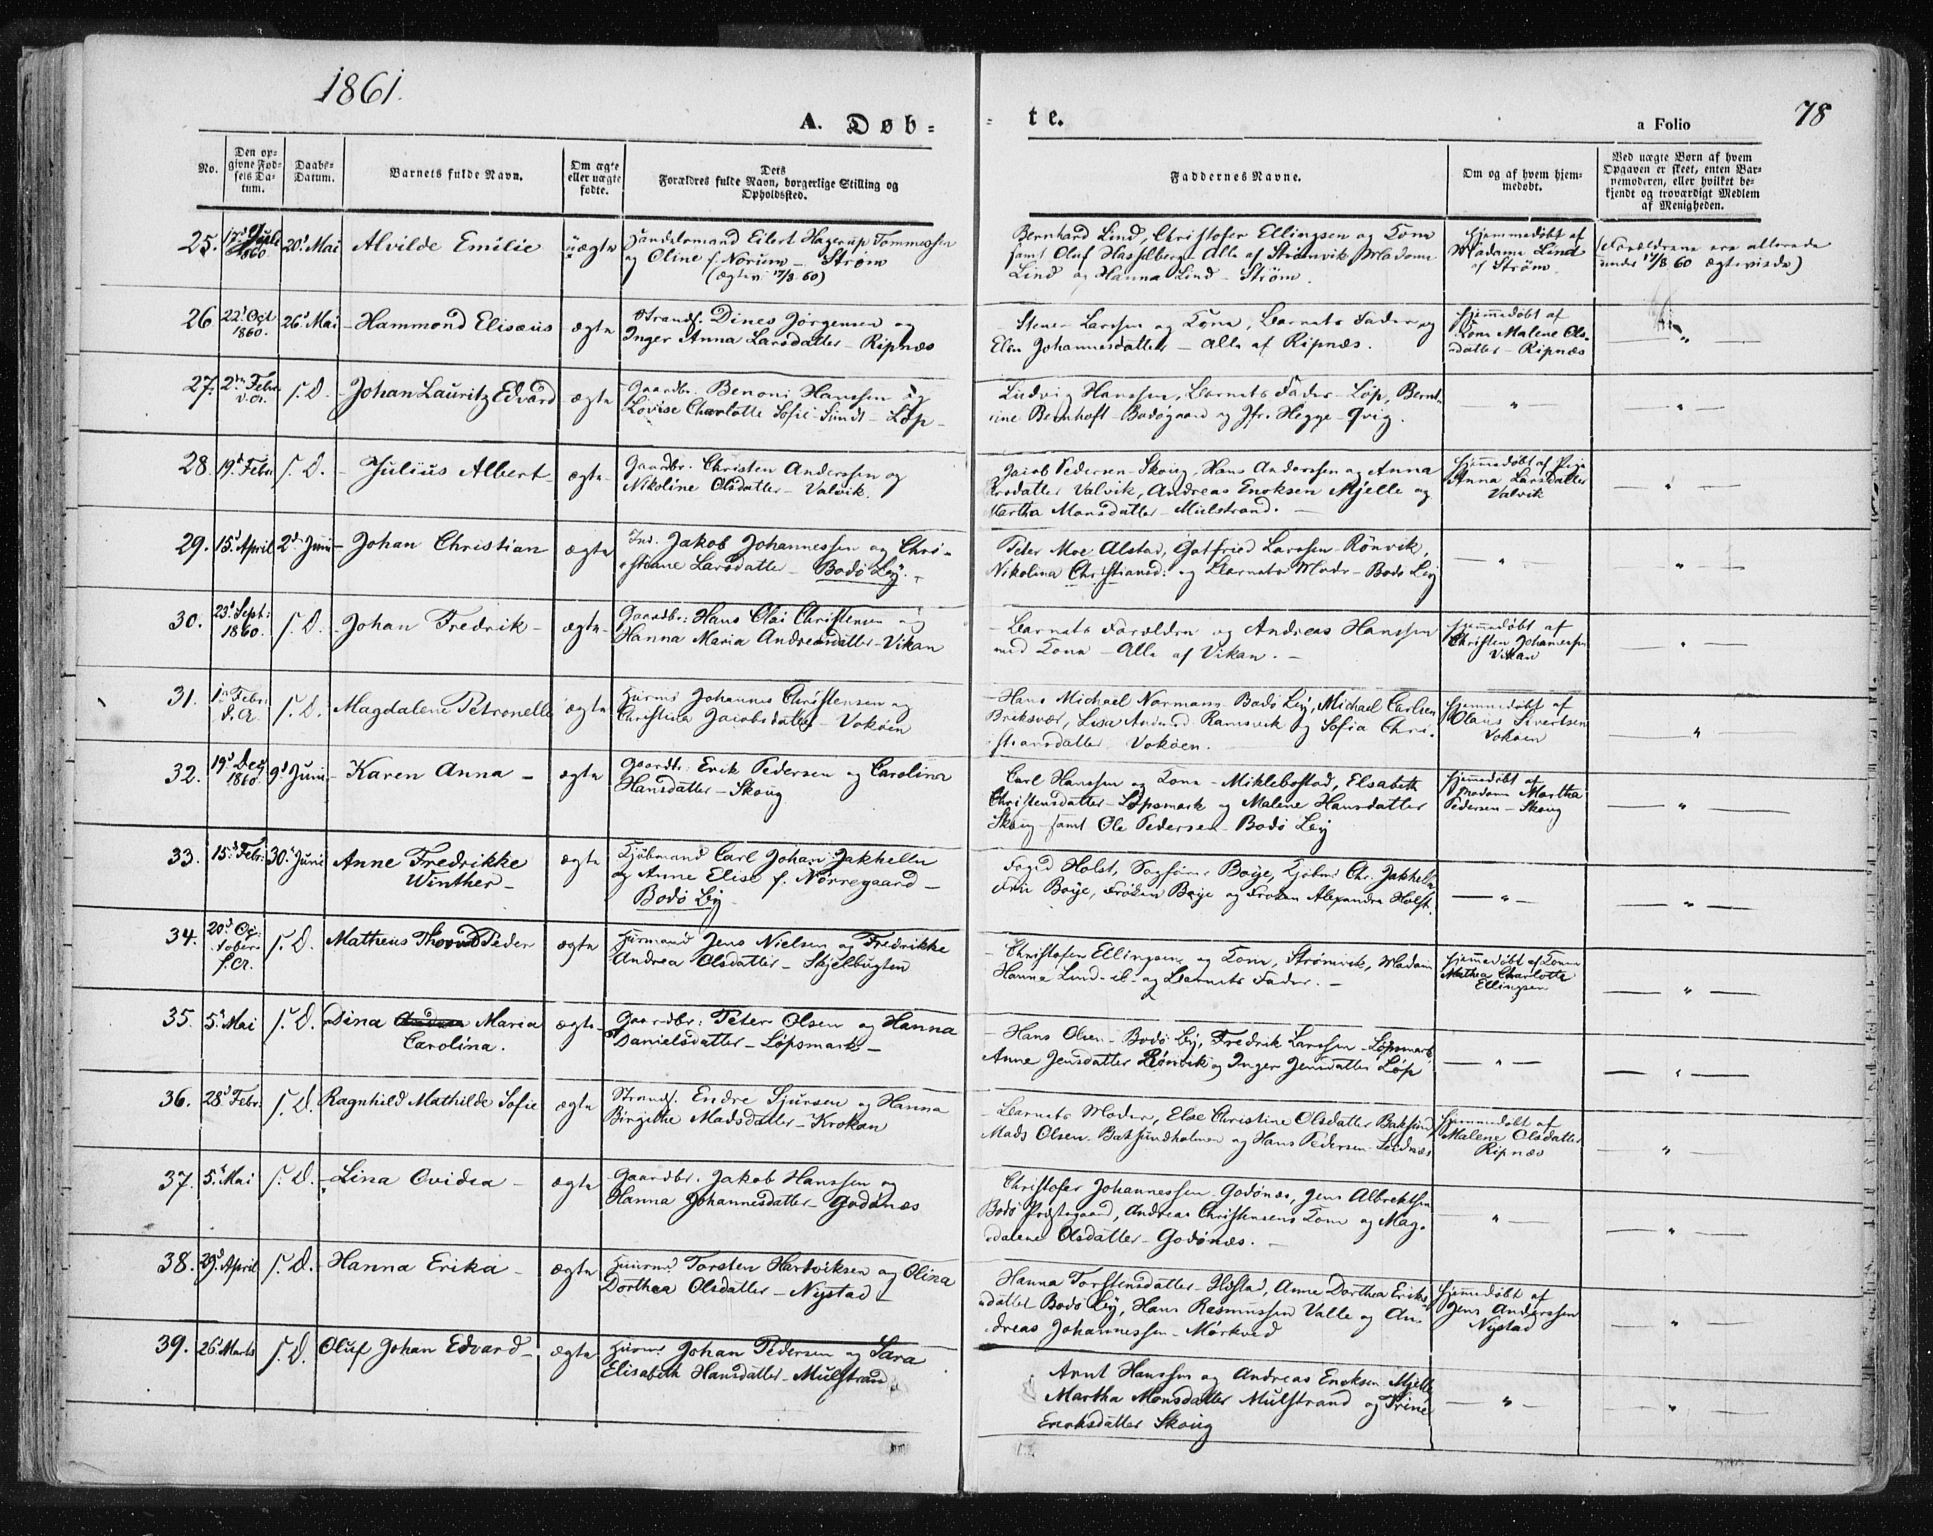 1861.
A. Døb-
te.
a Folio
78
No.
Den opgivne Fødsels Datum.
Daabs-Datum.
Barnets fulde Navn.
Om ægte eller uægte født.
Dets Forældres fulde Navn, borgerlige Stilling og Opholdssted.
Faddernes Navne.
Om og af hvem hjemmedøbt.
Ved uægte Børn af hvem Opgaven er skeet, enten Barnemoderen, eller hvilket bekjendt og troværdigt Medlem af Menigheden.
25. 1860. 20d Mai Alvilde Emilie uægte Handelsmand Eilert Hagerup Tommessen
og Oline f. Norum - Strøm
(ægtev. 17/8 60)
Bernhard Lind, Christofer Ellingsen og Kone
samt Oluf Hasselberg - Alle af Strømvik Madame
Lind og Hanna Lind - Strøm.
Hjemmedøbt af
Madame Lind
af Strøm
(Forældrene ere allerede
under 17/8 60 ægteviede)
26 22d Oct 1860. 26d Mai - Hammond Elisæus ægte Strands. Dines Jørgensen og
Inger Anna Larsdatter - Ripnæs
Larssen og Kone, Barnets Fader og
Elen Johannesdatter - Alle af Ripnæs.
Hjemmedøbt af
Kone Malene Ols-
datter - Ripnæs
— „ —
27. 2den Febr. s. D. - Johan Lauritz Edvard ægte Gaardbr. Benoni Hanssen og
Lovise Charlotte Sofie Sundt - Løp -
Ludvig Hanssen, Barnets Fader - Løp, Bernt-
ine Bernhoft - Bodøgaard og Jfr. Hegge - Qvig.
— „ —
— „ —
28. 19d Febr. s. D. - Julius Albert - ægte - Gaardbr. Christen Anderssen og
Nikoline Olsdatter - Valvik.
Jacob Pedersen - Skoug, Hans Anderssen og Anna
Larsdatter Valvik, Andreas Enoksen Mjelle og
Martha Monsdatter - Mulstrand. -
Hjemmedøbt af Pige
Anna Larsdatter
Valvik
— „ —
29. 15d April 2d Juni - Johan Christian ægte Ind. Jakob Johannessen og Chri-
stiane Larsdatter - Bodø By. -
Peter Moe Alstad, Gotfried Larssen - Rønvik,
Nikolina Christiansd: og Barnets Moder - Bodø By
— „ —
— „ —
30. 23d Sept: 1860. s. D. - Johan Fredrik - ægte - Gaardbr: Hans Olai Christensen og
Hanna Maria Andreasdatter - Vikan
- Barnets Forældre og Andreas Hanssen
med Kone - Alle af Vikan. -
Hjemmedøbt af
Christen Johannessen
Vikan
— „ —
31. 1n Febr: s. A. s. D. Magdalene Petronelle ægte Huusmd Johannes Christensen og
Christine Jacobsdatter - Vokøen
Hans Michael Normann Bodø By, Michael Carlsen
Briksvær, Lise Andersd. Ramsvik og Sofia Chri-
stiansdatter Vokøen.
Hjemmedøbt af
Olaus Sivertsen
Vokøen
— „ —
32. 19d Dec 1860. 9d Juni - Karen Anna - ægte Gaardbr: Erik Pedersen og Caroline
Hansdatter - Skoug
Carl Hanssen og Kone - Miklebostad, Elsabeth
Christensdatter - Løpsmark og Malene Hansdatter
Skoug - samt Ole Pedersen - Bodø By
Hjemmedøbt af
Madame Martha
Pedersen - Skoug
— „ —
33. 15d Febr: 30d Juni Anne Fredrikke
Winther -
ægte Kjøbmand Carl Johan Jakhelln
og Anne Elise f. Nørregaard -
Bodø By
Foged Holst, Sagfører Boye, Kjøbm. Chr. Jakhelln
Fru Boye, Frøken Boye og Frøken Alexandra Holst.
— „ —
— „ —
34. 20d October f. A. s. D. Matheus Thorvald Peder ægte Huusmand Jens Nielsen og Fredrikke
Andrea Olsdatter - Skjelbugten
- Christofer Ellingsen og Kone, Strømvik, Madam
Hanne Lind - og Barnets Fader. -
Hjemmedøbt af Kone
Mathea Charlotte
Ellingsen
— „ —
35. 5d Mai s. D. Dina Maria
Carolina.
ægte - Gaardbr: Peter Olsen og Hanna
Danielsdatter - Løpsmark -
- Hans Olsen - Bodø By, Fredrik Larssen - Løpsmark
Anne Jensdatter Rønvik og Inger Jensdatter Løp
— „ —
— „ —
36. 28d Febr: s. D. Ragnhild Mathilde Sofie ægte Strands. Endre Sjursen og Hanna
Birgithe Madsdatter - Krokan
- Barnets Moder, Else Christine Olsdatter Baksund
Mads Olsen - Baksundholmen og Hans Pedersen -
Hjemmedøbt af
Malene Olsdatter
Ripnæs
— „ —
37. 5d Mai s. D. - Lina Ovidia - ægte Gaardbr. Jakob Hanssen og
Hanna Johannesdatter - Godønæs
Christofer Johannessen - Godønæs, Jens Albrektsen
Bodø Præstegaard, Andreas Christensens Kone og Mag-
dalene Olsdatter - Godønæs. -
— „ —
— „ —
38. 29d April s. D. - Hanna Erika - ægte Huusmd Torsten Hartviksen og Olina
Dorthea Olsdatter - Nystad -
Hanna Torstensdatter -, Anne Dorthea Eriks-
datter Bodø By, Hans Rasmussen Valle og An-
dreas Johannessen - Mørkved
Hjemmedøbt af
Jens Anderssen
Nystad
— „ —
39. 26d Marts s. D. Oluf Johan Edvard - ægte Huusm. Johan Pedersen og Sara
Elisabeth Hansdatter - Mulstrand
Arnt Hanssen og Andreas Enoksen Mjelle
Martha Monsdatter Mulstrand og Trine
Enoksdatter Skoug
— „ —
— „ —